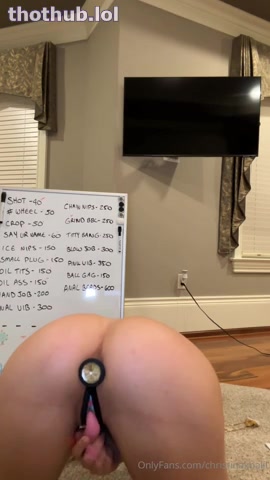 thothub.lol
SHOT -40
# WHEEL - 50
CROP - 50
SAY UR NAME - 60
ICE NIPS - 150
SMALL PLUG - 150
OIL TITS - 150
OIL ASS - 150
HAND JOB - 200
ANAL VIB - 300
CHAIN NIPS - 250
GRIND BBC - 250
TITY BANG - 250
BLOW JOB - 300
ANL VIB - 350
BALL GAG - 150
ANAL BEADS - 600